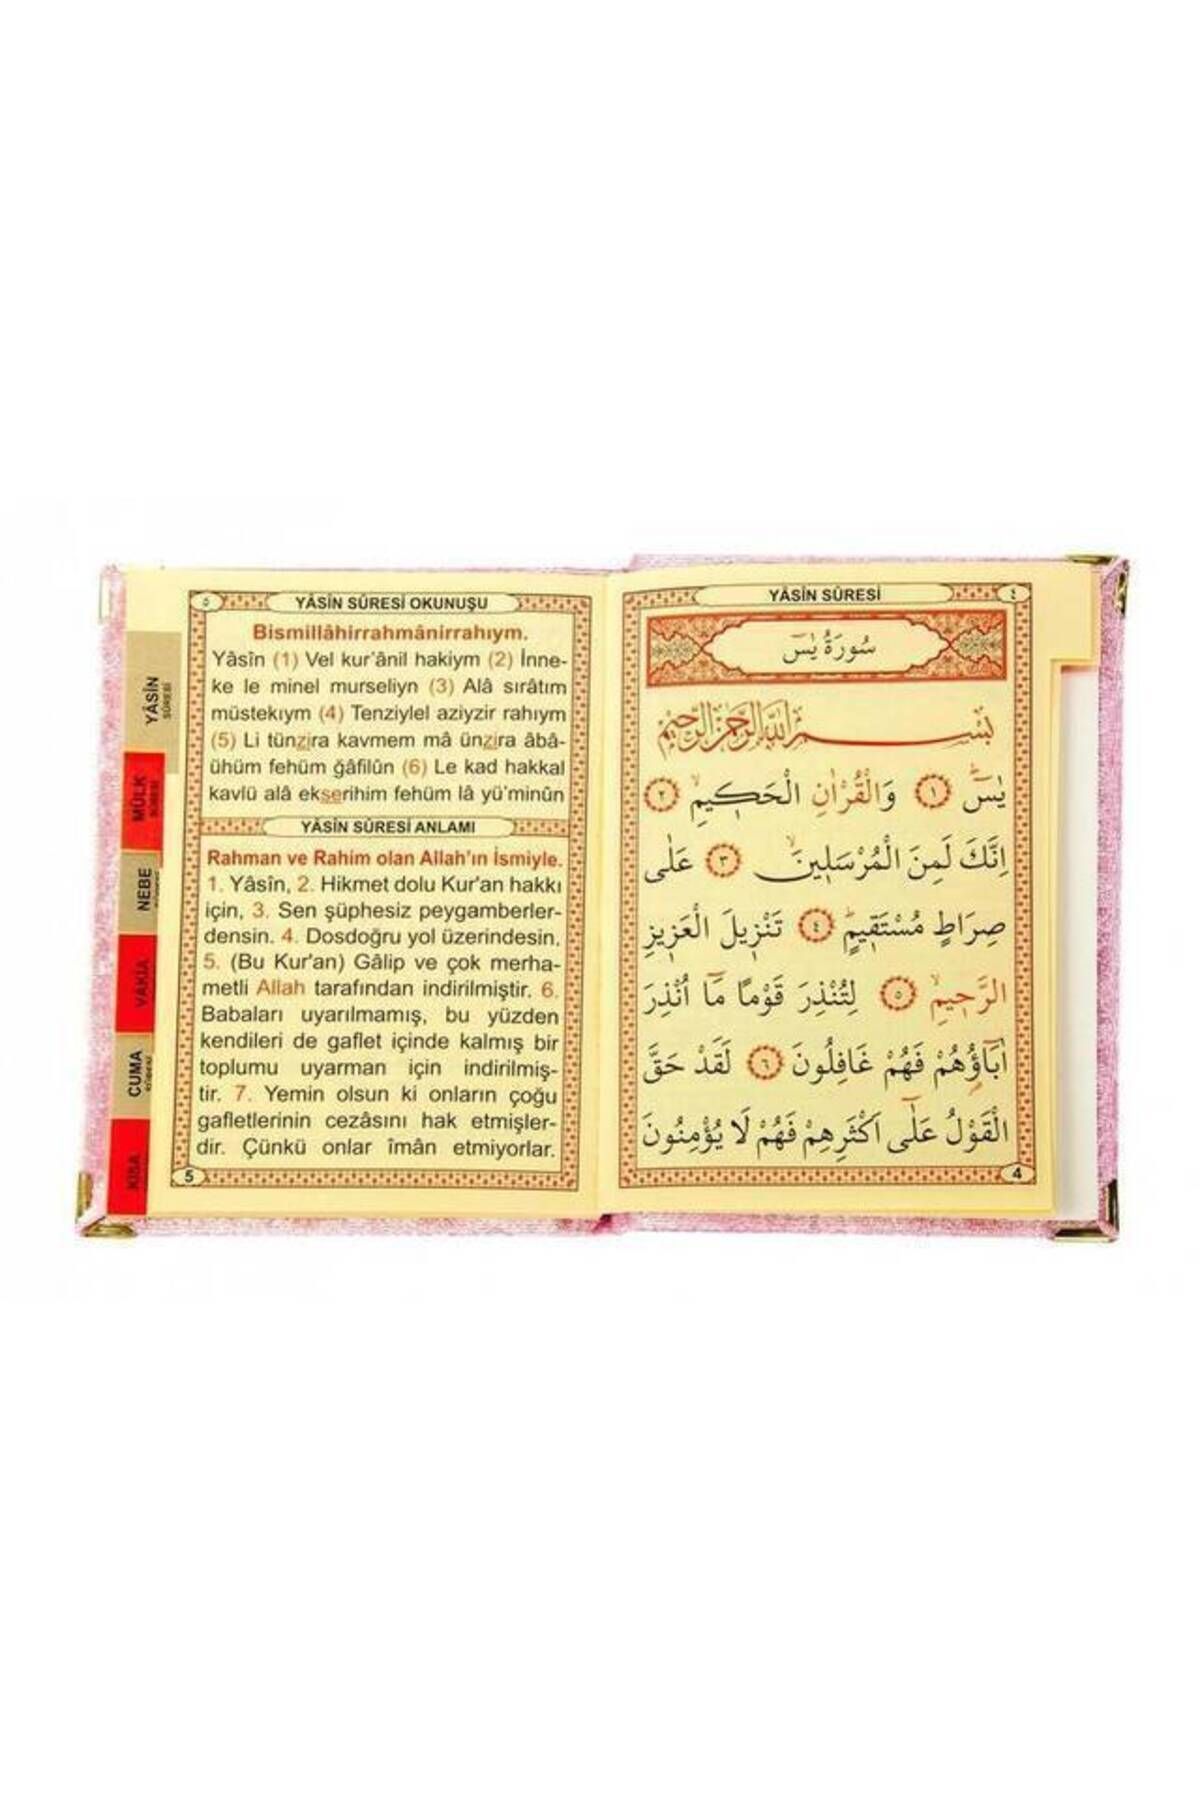 YÂSİN SÛRESİ
٤
سُورَةُ يٰسٓ
بِسْــــــمِ اللّٰهِ الرَّحْمٰنِ الرَّحٖيمِ
يٰسٓ ۜ ﴿١﴾ وَالْقُرْاٰنِ الْحَكٖيمِ ۙ ﴿٢﴾
اِنَّكَ لَمِنَ الْمُرْسَلٖينَ ۙ ﴿٣﴾ عَلٰى
صِرَاطٍ مُسْتَقٖيمٍ ۜ ﴿٤﴾ تَنْزٖيلَ الْعَزٖيزِ
الرَّحٖيمِ ۙ ﴿٥﴾ لِتُنْذِرَ قَوْمًا مَٓا اُنْذِرَ
اٰبَٓاؤُ۬هُمْ فَهُمْ غَافِلُونَ ﴿٦﴾ لَقَدْ حَقَّ
الْقَوْلُ عَلٰٓى اَكْثَرِهِمْ فَهُمْ لَا يُؤْمِنُونَ
4
٥
YÂSİN SÛRESİ OKUNUŞU
Bismillâhirrahmânirrahıym.
Yâsîn (1) Vel kur'ânil hakiym (2) İnne-
ke le minel murseliyn (3) Alâ sırâtım
müstekıym (4) Tenziylel aziyzir rahıym
(5) Li tünzira kavmem mâ ünzira âbâ-
ühüm fehüm ğâfilûn (6) Le kad hakkal
kavlü alâ ekserihim fehüm lâ yü'minûn
YÂSİN SÛRESİ ANLAMI
Rahman ve Rahim olan Allah'ın İsmiyle.
1. Yâsîn, 2. Hikmet dolu Kur'an hakkı
için, 3. Sen şüphesiz peygamberler-
densin. 4. Dosdoğru yol üzerindesin.
5. (Bu Kur'an) Gâlip ve çok merha-
metli Allah tarafından indirilmiştir. 6.
Babaları uyarılmamış, bu yüzden
kendileri de gaflet içinde kalmış bir
toplumu uyarman için indirilmiş-
tir. 7. Yemin olsun ki onların çoğu
gafletlerinin cezâsını hak etmişler-
dir. Çünkü onlar îmân etmiyorlar.
5
YÂSİN
SÛRESİ
MÜLK
SÛRESİ
NEBE
VAKIA
CUMA
KISA